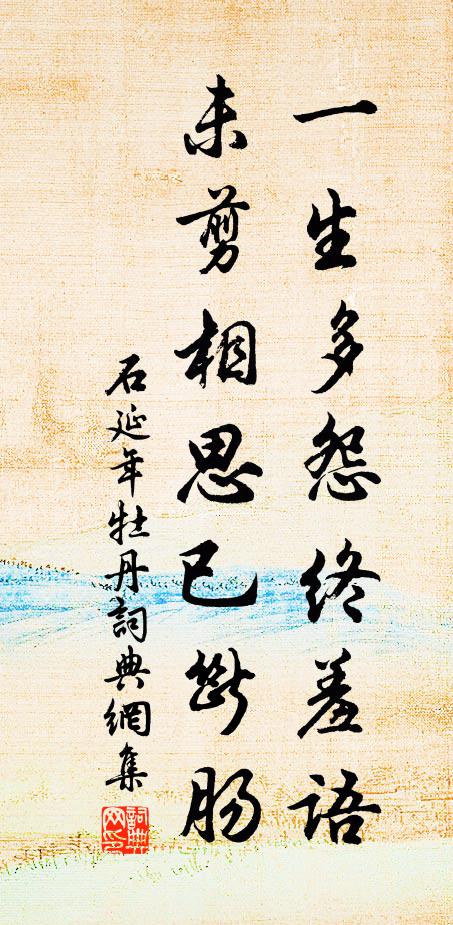 一生多怨终羞语
未剪相思已断肠
石延年牡丹詞典網集
詞典网印